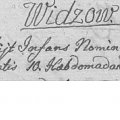 Widzow.
jt Infans Nomin
tis W. Habdomadar